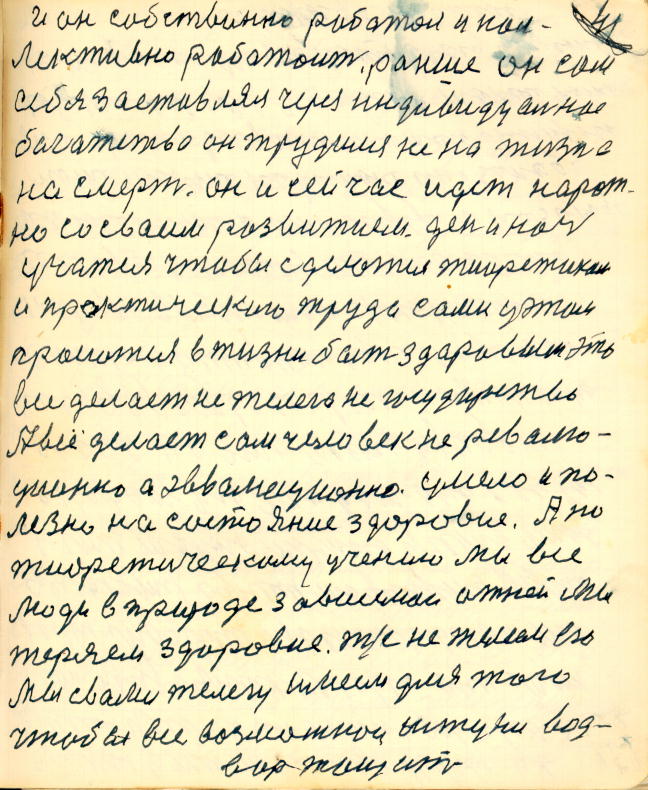 и он собственно работал и кол-
лективно работоит, ранше он сам
себя заставлял через индивидуалное
богатество он трудился не на жизн а
на смерт. он и сейчас идет нарот-
но со сваим розвитием. ден и ноч
учатся чтобы сделотся тиоретиком
и проктического труда сами у этом
в тизни быт здаровым это
все делает не телега не государство
А всё делает сам человек не ревалю-
ционно а эввалюционно. умело и по-
лезно на состояние здоровие. А по
тиоретическому учению мы все
люди в природе зависимаи от ней мы
теряем здоровие.
мы свами телегу имеем для того
чтобы все возможнаи штуки вод-